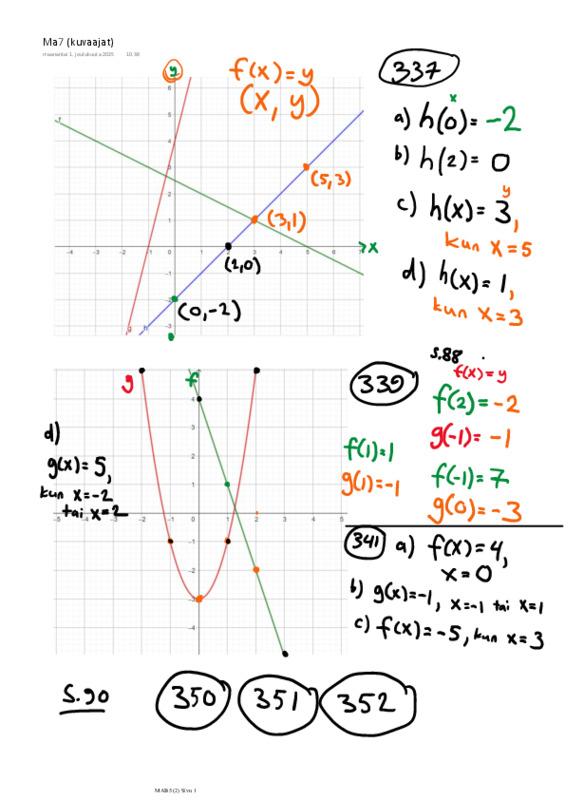 Ma7 (kuvaajat)
maanantai 1. joulukuuta 2025 10.38
y
f(x)=y
(x, y)
337
x
a) h(0)= -2
b) h(2)= 0
c) h(x)= 3,
y
kun x=5
d) h(x)= 1,
kun x=3
(5,3)
(3,1)
(2,0)
(0,-2)
x
f
g
h
-4 -3 -2 -1 0 1 2 4 6
6
5
4
3
2
1
-1
-2
-3
s.88
339
f(x)=y
f(2)=-2
g(-1)=-1
f(1)=1
f(-1)=7
g(1)=-1
g(0)=-3
g
f
d)
g(x)=5,
kun x=-2
tai x=2
-5 -4 -3 -2 -1 0 1 2 3 4 5
4
3
2
1
-1
-2
-3
-4
341 a) f(x)=4,
x=0
b) g(x)=-1, x=-1 tai x=1
c) f(x)=-5, kun x=3
S.90
350 351 352